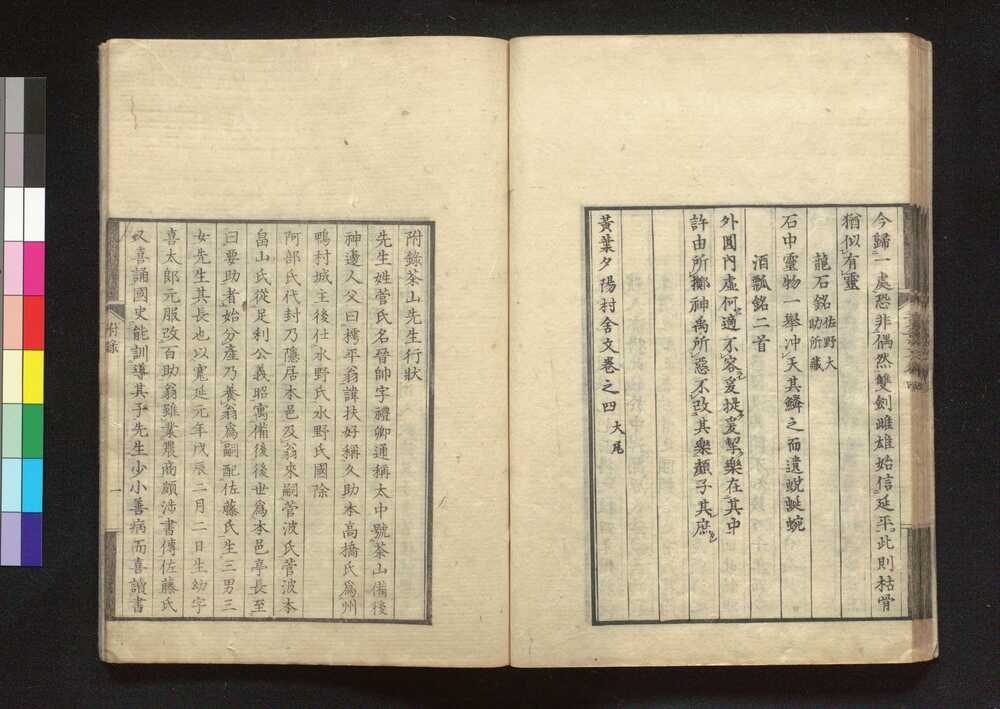 今歸一處恐非偶然雙劍雌雄始信延平此則枯骨
猶似有靈
龍石銘 佐野大助所藏
石中靈物一擧冲天其鱗之而遺蛻蜿蜒
酒瓢銘二首
外圓內虛何適不容爰提爰挈樂在其中
許由所擲神禹所惡不改其樂顏子其庶
黃葉夕陽村舍文卷之四 大尾
附錄茶山先生行狀
先生姓菅氏名晉帥字禮卿通稱太中號茶山備後
神邊人父曰樗平翁諱扶好稱久助本高橋氏爲州
鴨村城主後仕水野氏水野氏國除
阿部氏代封乃隱居本邑及翁來嗣菅波氏菅波本
畠山氏從足利公義昭寓備後後世爲本邑亭長至
曰要助者始分產乃養翁爲嗣配佐藤氏生三男三
女先生其長也以寬延元年戊辰二月二日生幼字
喜太郎元服改百助翁雖業農商頗涉書傳佐藤氏
又喜誦國史能訓導其子先生少小善病而喜讀書
附錄
一